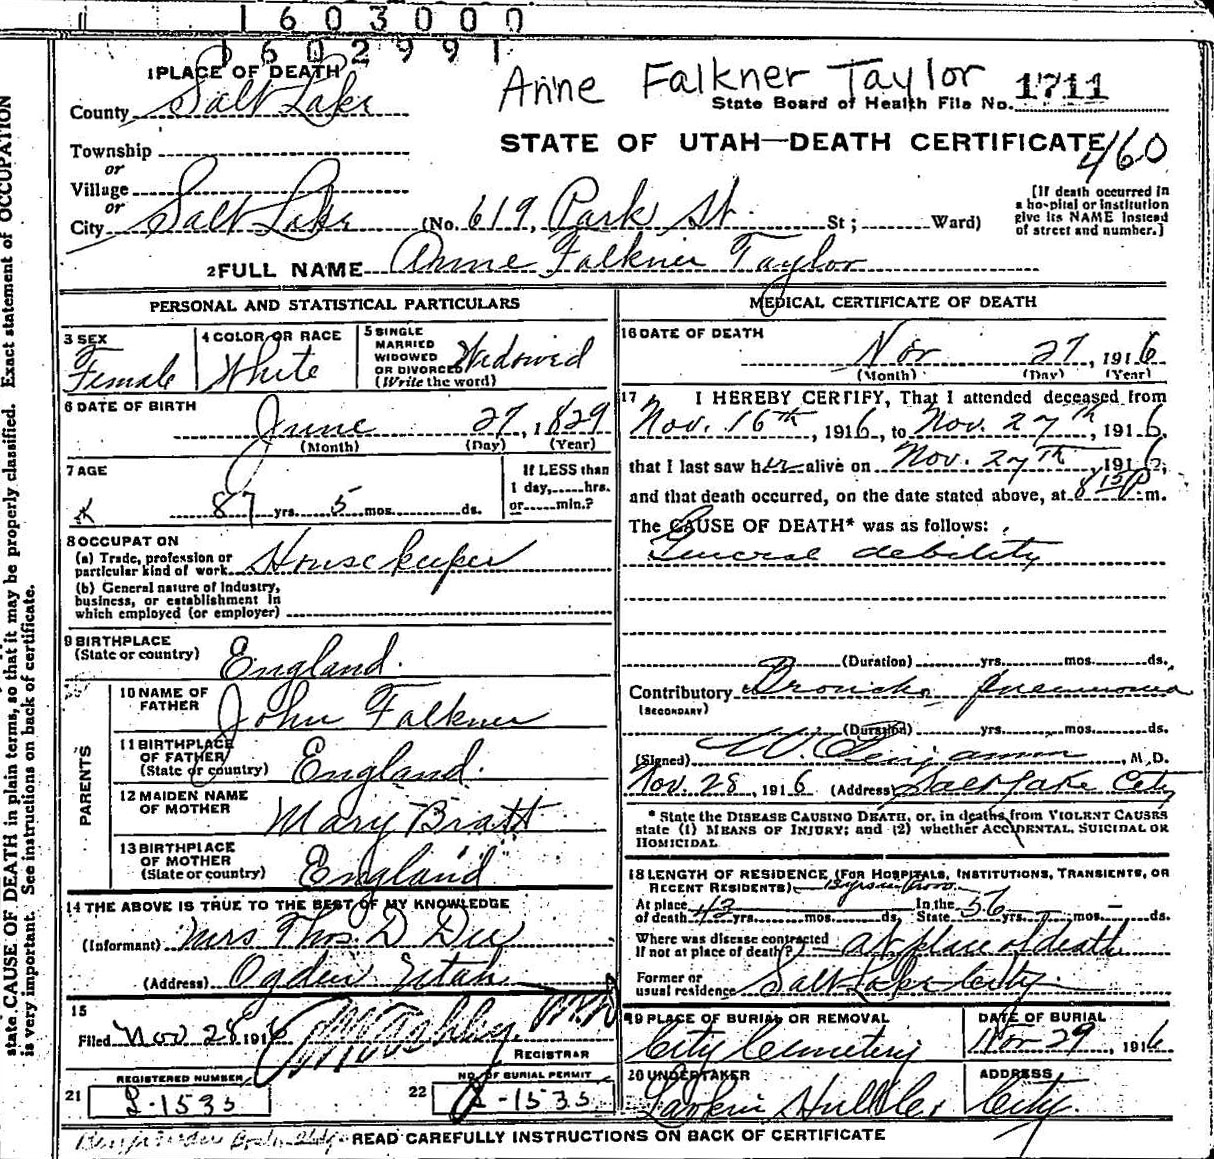 1603000
1602991
1 PLACE OF DEATH
Anne Falkner Taylor
County Salt Lake
State Board of Health File No. 1711
STATE OF UTAH—DEATH CERTIFICATE
460
Township
or
Village
or
City Salt Lake (No. 619, Park St. St; Ward)
[If death occurred in
a hospital or institution
give its NAME instead
of street and number.]
2 FULL NAME Anne Falkner Taylor
PERSONAL AND STATISTICAL PARTICULARS
3 SEX
Female
4 COLOR OR RACE
White
5 SINGLE
MARRIED
WIDOWED
OR DIVORCED
(Write the word)
Widowed
6 DATE OF BIRTH
June 27, 1829
(Month) (Day) (Year)
7 AGE
87 yrs. 5 mos. ds.
If LESS than
1 day, hrs.
or min.?
8 OCCUPATION
(a) Trade, profession or
particular kind of work Housekeeper
(b) General nature of industry,
business, or establishment in
which employed (or employer)
9 BIRTHPLACE
(State or country) England.
PARENTS
10 NAME OF
FATHER John Falkner
11 BIRTHPLACE
OF FATHER
(State or country) England.
12 MAIDEN NAME
OF MOTHER Mary Bratt
13 BIRTHPLACE
OF MOTHER
(State or country) England
14 THE ABOVE IS TRUE TO THE BEST OF MY KNOWLEDGE
(Informant) Mrs Thos. D Dee
(Address) Ogden Utah
15
Filed Nov 28 1916
REGISTRAR
MEDICAL CERTIFICATE OF DEATH
16 DATE OF DEATH
Nov 27, 1916
(Month) (Day) (Year)
17 I HEREBY CERTIFY, That I attended deceased from
Nov. 16th, 1916, to Nov. 27th, 1916,
that I last saw her alive on Nov. 27th, 1916,
and that death occurred, on the date stated above, at 8 15 P. m.
The CAUSE OF DEATH* was as follows:
General debility
(Duration) yrs. mos. ds.
Contributory Broncho pneumonia
(SECONDARY)
(Duration) yrs. mos. ds.
(Signed) W. Benjamin, M.D.
Nov. 28, 1916 (Address) Salt Lake City
* State the DISEASE CAUSING DEATH, or, in deaths from VIOLENT CAUSES
state (1) MEANS OF INJURY; and (2) whether ACCIDENTAL, SUICIDAL OR
HOMICIDAL
18 LENGTH OF RESIDENCE (FOR HOSPITALS, INSTITUTIONS, TRANSIENTS, OR
RECENT RESIDENTS)
At place In the
of death 43 yrs. mos. ds. State 56 yrs. mos. ds.
Where was disease contracted
If not at place of death? at place of death
Former or
usual residence Salt Lake City
19 PLACE OF BURIAL OR REMOVAL
City Cemetery
DATE OF BURIAL
Nov 29, 1916
20 UNDERTAKER
Larkin Hull
ADDRESS
City.
21 REGISTERED NUMBER
L-1535
22 NO. OF BURIAL PERMIT
L-1535
READ CAREFULLY INSTRUCTIONS ON BACK OF CERTIFICATE
state CAUSE OF DEATH in plain terms, so that it may be properly classified. Exact statement of OCCUPATION
is very important. See instructions on back of certificate.